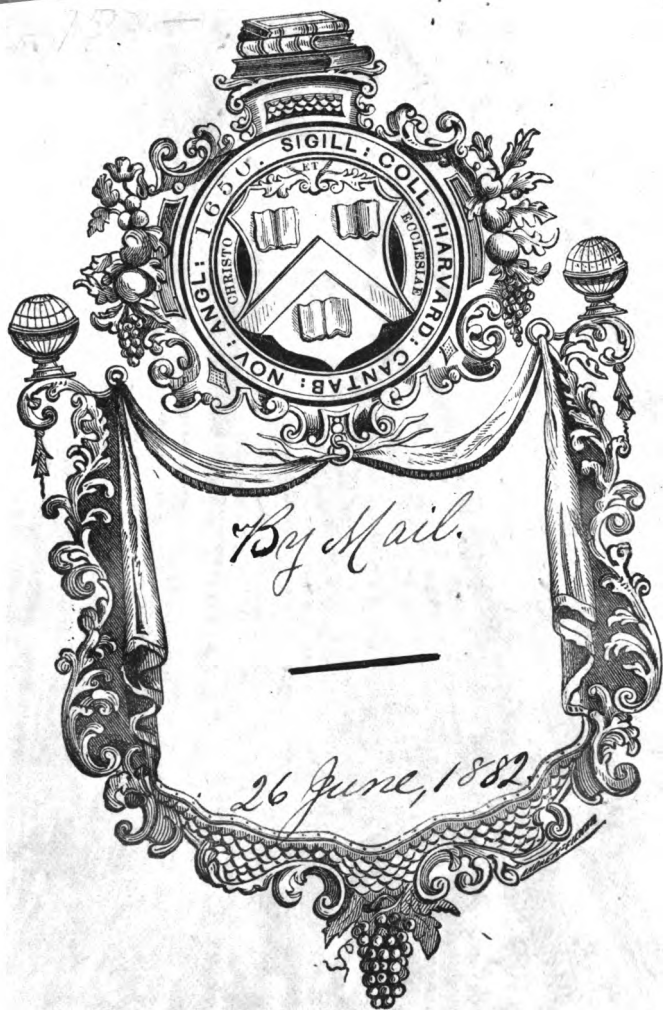 SIGILL: COLL: HARVARD: CANTAB: NOV: ANGL: 1650.
ET
CHRISTO
ECCLESIAE
By Mail.
26 June, 1882.